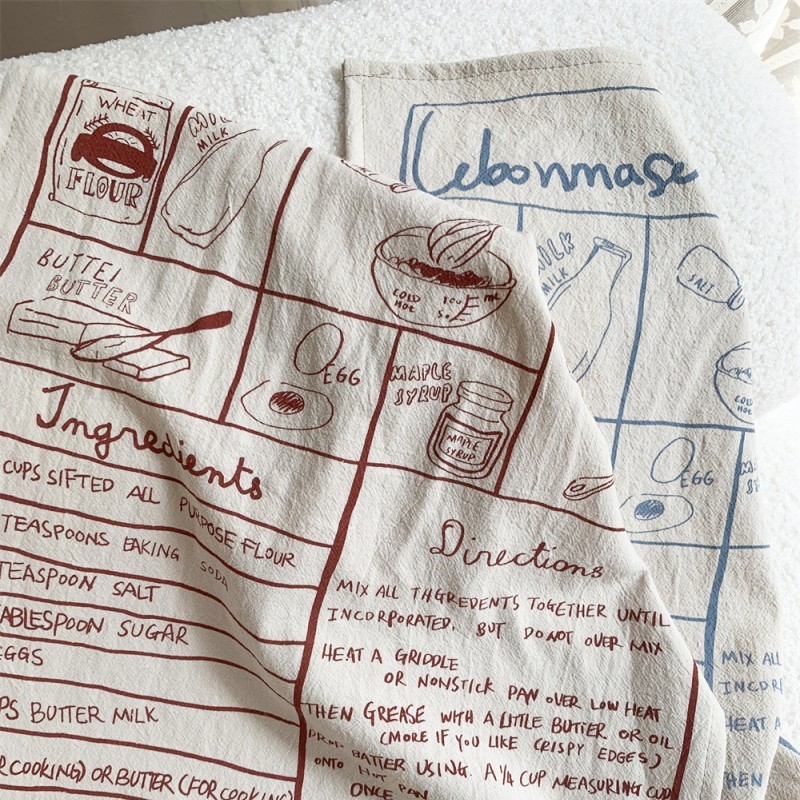 WHEAT
FLOUR
MILK
BUTTER
BUTTER
COLD
HOT
EGG
MAPLE
SYRUP
MAPLE
SYRUP
Ingredients
CUPS SIFTED ALL PURPOSE FLOUR
TEASPOONS BAKING SODA
TEASPOON SALT
TABLESPOON SUGAR
EGGS
PS BUTTER MILK
R COOKING) OR BUTTER (FOR COOKING)
Directions
MIX ALL THGREDENTS TOGETHER UNTIL
INCORPORATED. BUT DO NOT OVER MIX
HEAT A GRIDDLE
OR NONSTICK PAN OVER LOW HEAT
THEN GREASE WITH A LITTLE BUTTER OR OIL
(MORE IF YOU LIKE CRISPY EDGES)
BATTER USING. A 1/4 CUP MEASURING CUP
ONTO HOT PAN
ONCE
Lebonmase
MILK
MILK
SALT
COLD
HOT
EGG
MIX ALL
INCOR
HEAT A
HEN